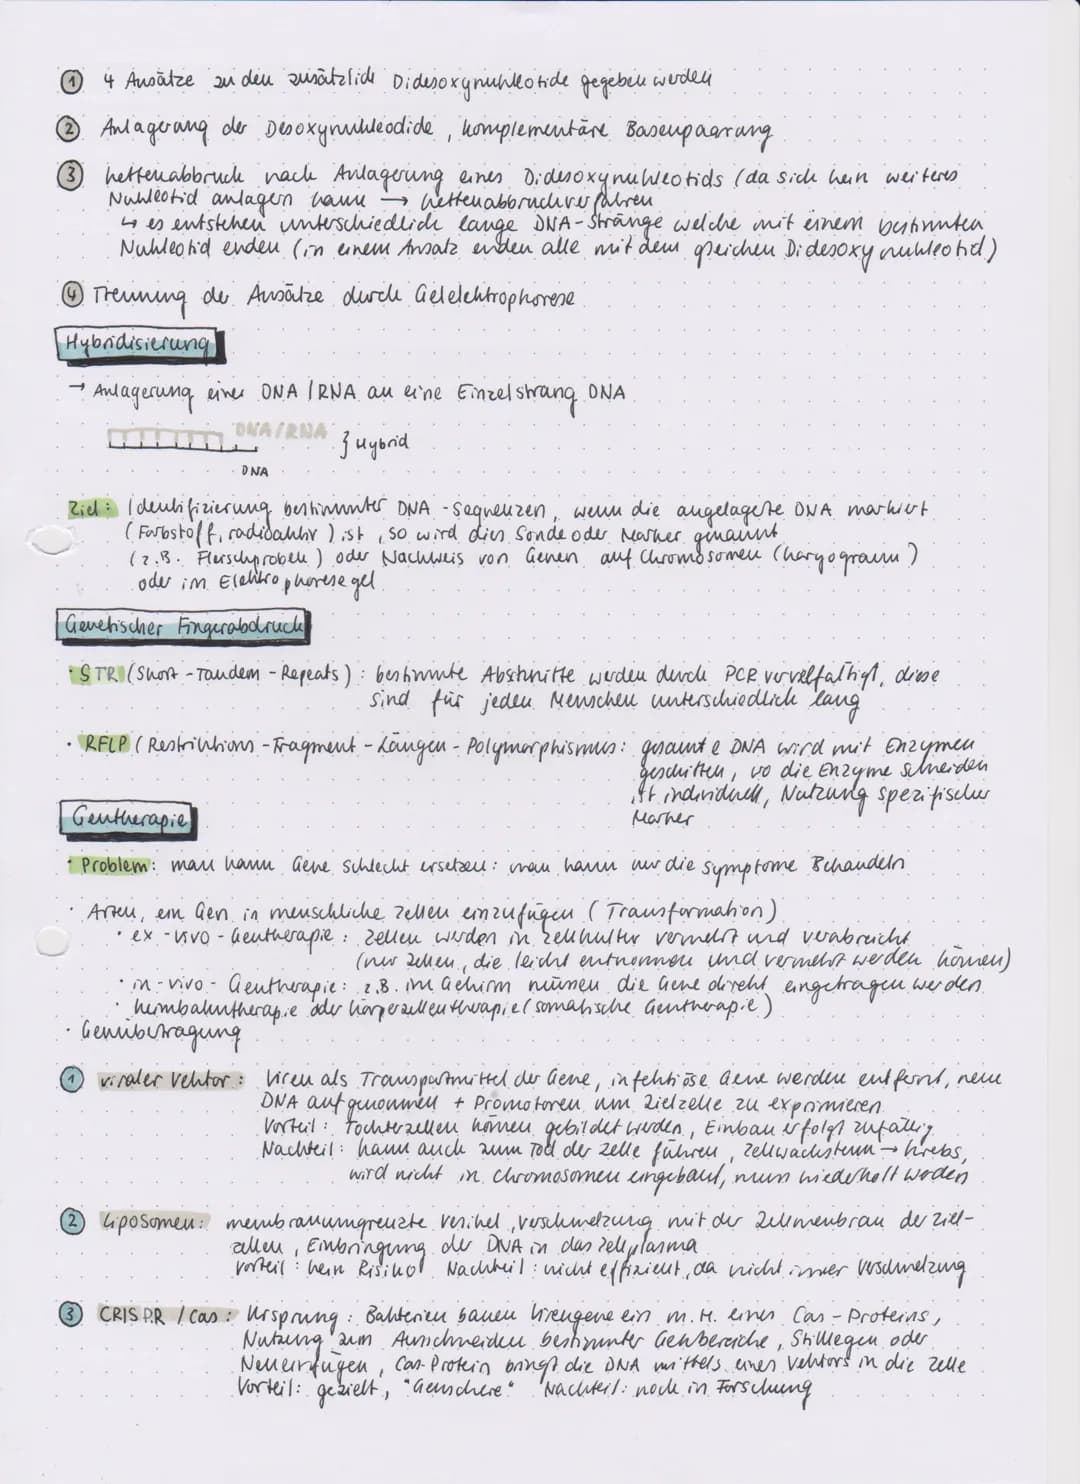 ① 4 Ansätze zu den zusätzlich Didesoxynukleotide gegeben werden
② Anlagerung der Desoxynukleodide, komplementäre Basenpaarung
③ Kettenabbruch nach Anlagerung eines Didesoxynukleotids (da sich kein weiteres
Nukleotid anlagern kann → Kettenabbruchverfahren
↳ es entstehen unterschiedlich lange DNA-Stränge welche mit einem bestimmten
Nukleotid enden (in einem Ansatz enden alle mit dem gleichen Didesoxynukleotid)
④ Trennung der Ansätze durch Gelelektrophorese
Hybridisierung
→ Anlagerung einer DNA / RNA an eine Einzelstrang DNA
DNA/RNA
} Hybrid
DNA
Ziel: Identifizierung bestimmter DNA-Sequenzen, wenn die angelagerte DNA markiert
(Farbstoff, radioaktiv) ist, so wird dies Sonde oder Marker genannt
(z.B. Fleischproben) oder Nachweis von Genen auf Chromosomen (Karyogramm)
oder im Elektrophoresegel
Genetischer Fingerabdruck
· STR (Short-Tandem-Repeats): bestimmte Abschnitte werden durch PCR vervielfältigt, diese
sind für jeden Menschen unterschiedlich lang
· RFLP (Restriktions-Fragment-Längen-Polymorphismus: gesamte DNA wird mit Enzymen
geschitten, wo die Enzyme schneiden
ist individuell, Nutzung spezifischer
Marker
Gentherapie
· Problem: man kann Gene schlecht ersetzen: man kann nur die Symptome Behandeln
· Arten, ein Gen in menschliche Zellen einzufügen (Transformation)
· ex-vivo-Gentherapie: Zellen werden in Zellkultur vermehrt und verabreicht
(nur Zellen, die leicht entnommen und vermehrt werden können)
· in-vivo-Gentherapie: z.B. im Gehirn müssen die Gene direkt eingetragen werden
· Keimbahntherapie oder Körperzellentherapie (somatische Gentherapie)
· Genübertragung
① viraler Vektor: Viren als Transportmittel der Gene, infektiöse Gene werden entfernt, neue
DNA aufgenommen + Promotoren um Zielzelle zu exprimieren
Vorteil: Tochterzellen können gebildet werden, Einbau erfolgt zufällig
Nachteil: kann auch zum Tod der Zelle führen, Zellwachstum → Krebs,
wird nicht in Chromosomen eingebaut, muss wiederholt werden
② Liposomen: membranumgrenzte Vesikel, Verschmelzung mit der Zellmenbran der Ziel-
zellen, Einbringung der DNA in das Zellplasma
Vorteil: kein Risiko! Nachteil: nicht effizient, da nicht immer Verschmelzung
③ CRISPR / Cas: Ursprung: Bakterien bauen Virengene ein m.H. eines Cas-Proteins,
Nutzung zum Ausschneiden bestimmter Genbereiche, Stilllegen oder
Neueinfügen, Cas-Protein bringt die DNA mittels eines Vektors in die Zelle
Vorteil: gezielt, "Genschere" Nachteil: noch in Forschung